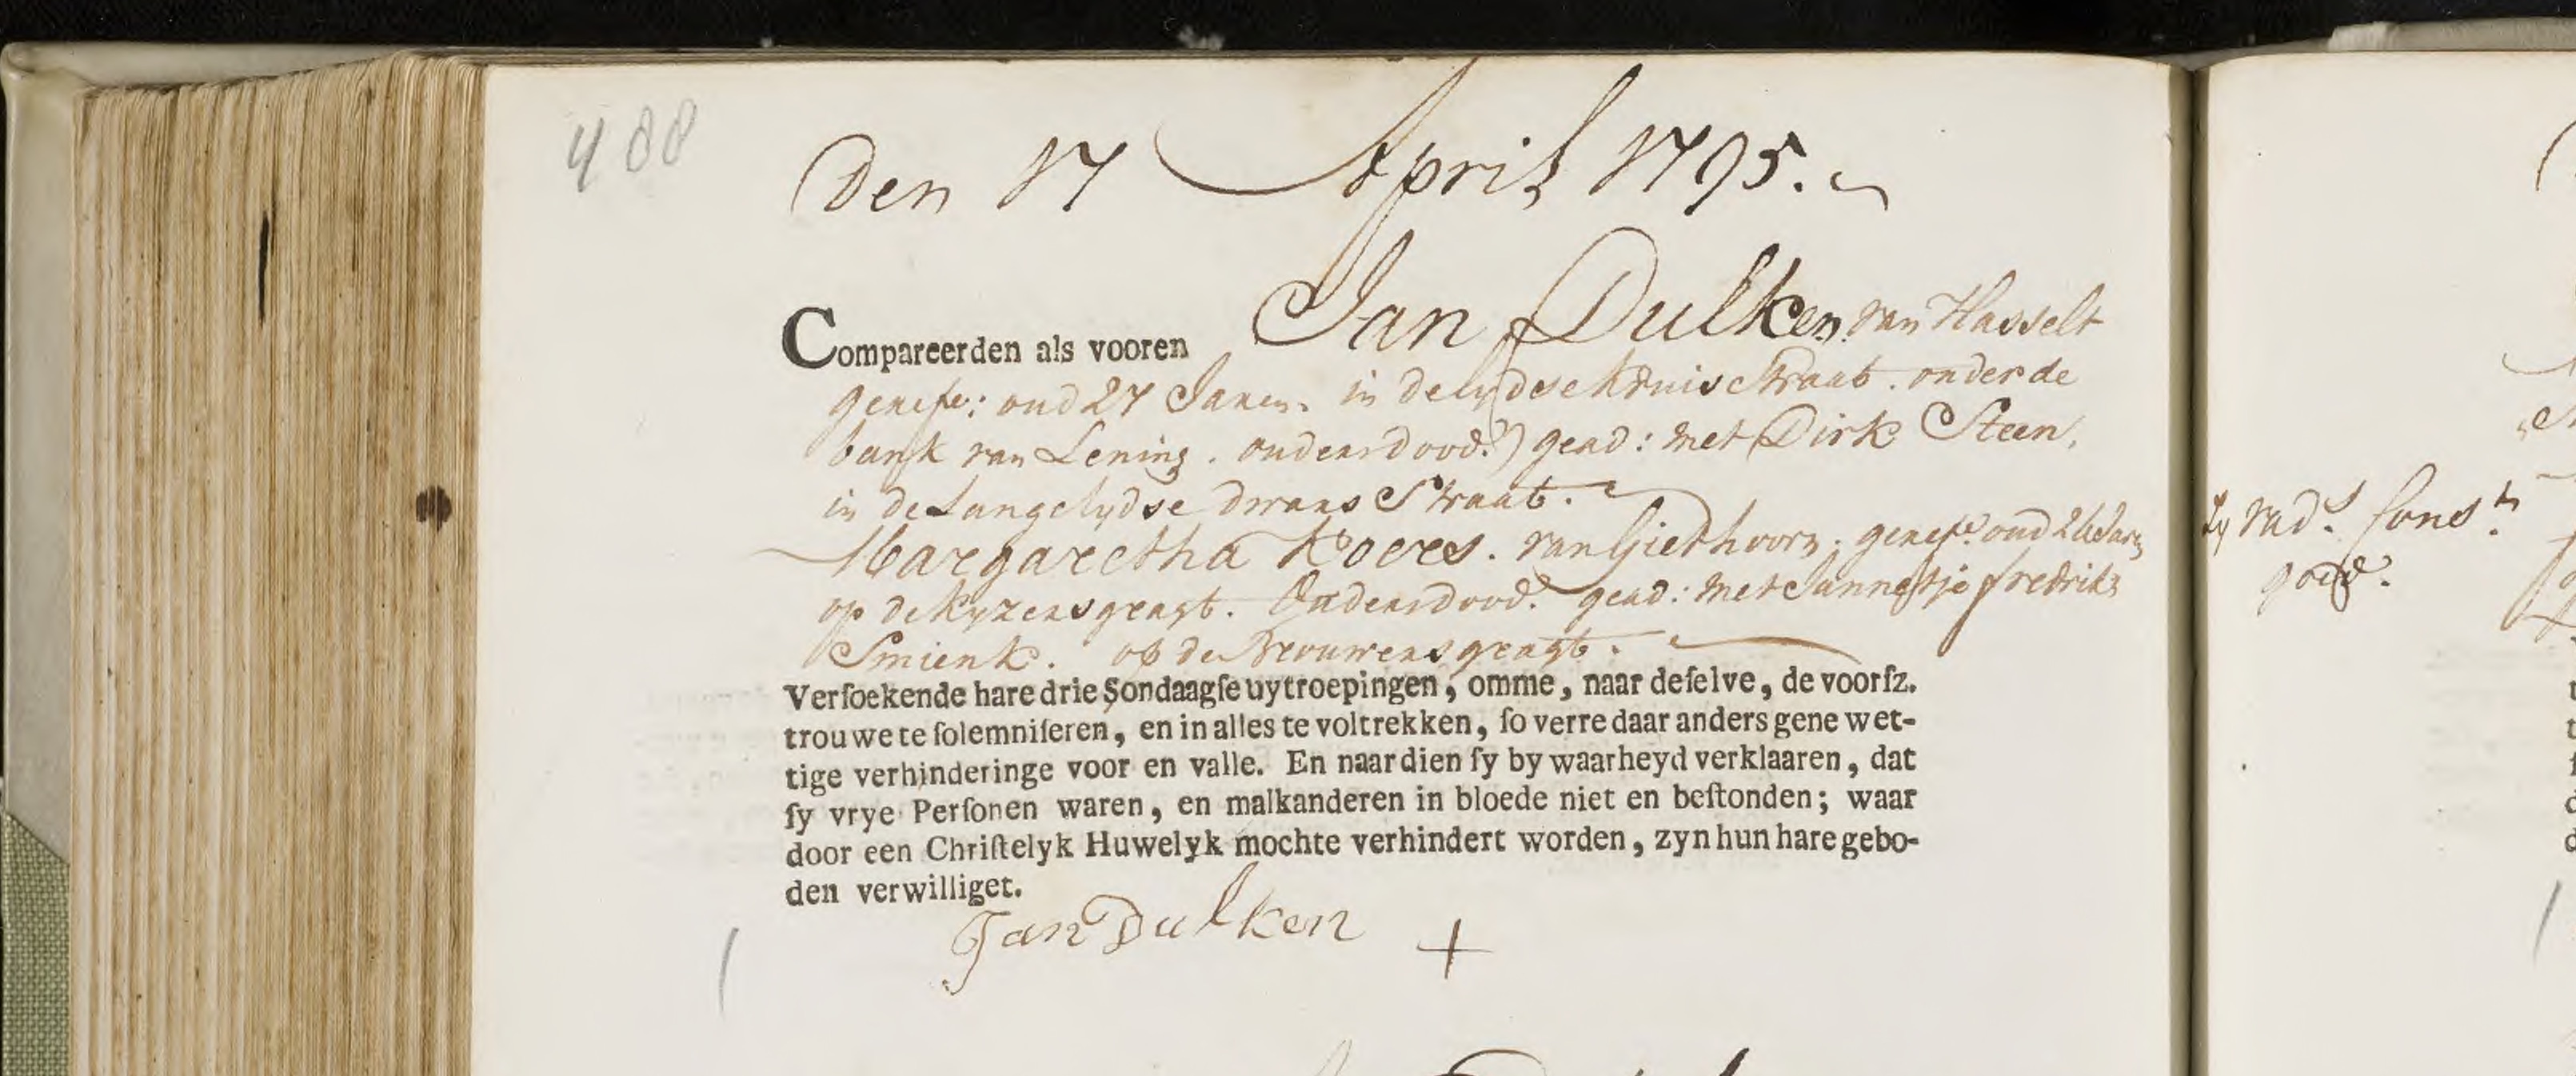 488
Den 17 April 1795.
Compareerden als vooren Jan Dulken van Hasselt
geref: oud 27 Jaren. in de lydsche kruis Straat. onder de
bank van Lening. ouders dood.) gead: met Dirk Steen,
in de Lange lydse dwars Straat.
Margaretha Roeres. van Giethoorn. geref: oud 26 Jaren
op de Kyzersgragt. Ouders dood. gead: met Jannetje fredriks
Smienk. op de Brouwersgragt.
Verſoekende hare drie Sondaagſe uytroepingen, omme, naar deſelve, de voorſz.
trouwe te ſolemniſeren, en in alles te voltrekken, ſo verre daar anders gene wet-
tige verhinderinge voor en valle. En naardien ſy by waarheyd verklaaren, dat
ſy vrye Perſonen waren, en malkanderen in bloede niet en beſtonden; waar
door een Chriſtelyk Huwelyk mochte verhindert worden, zyn hun hare gebo-
den verwilliget.
Jan Dulken +